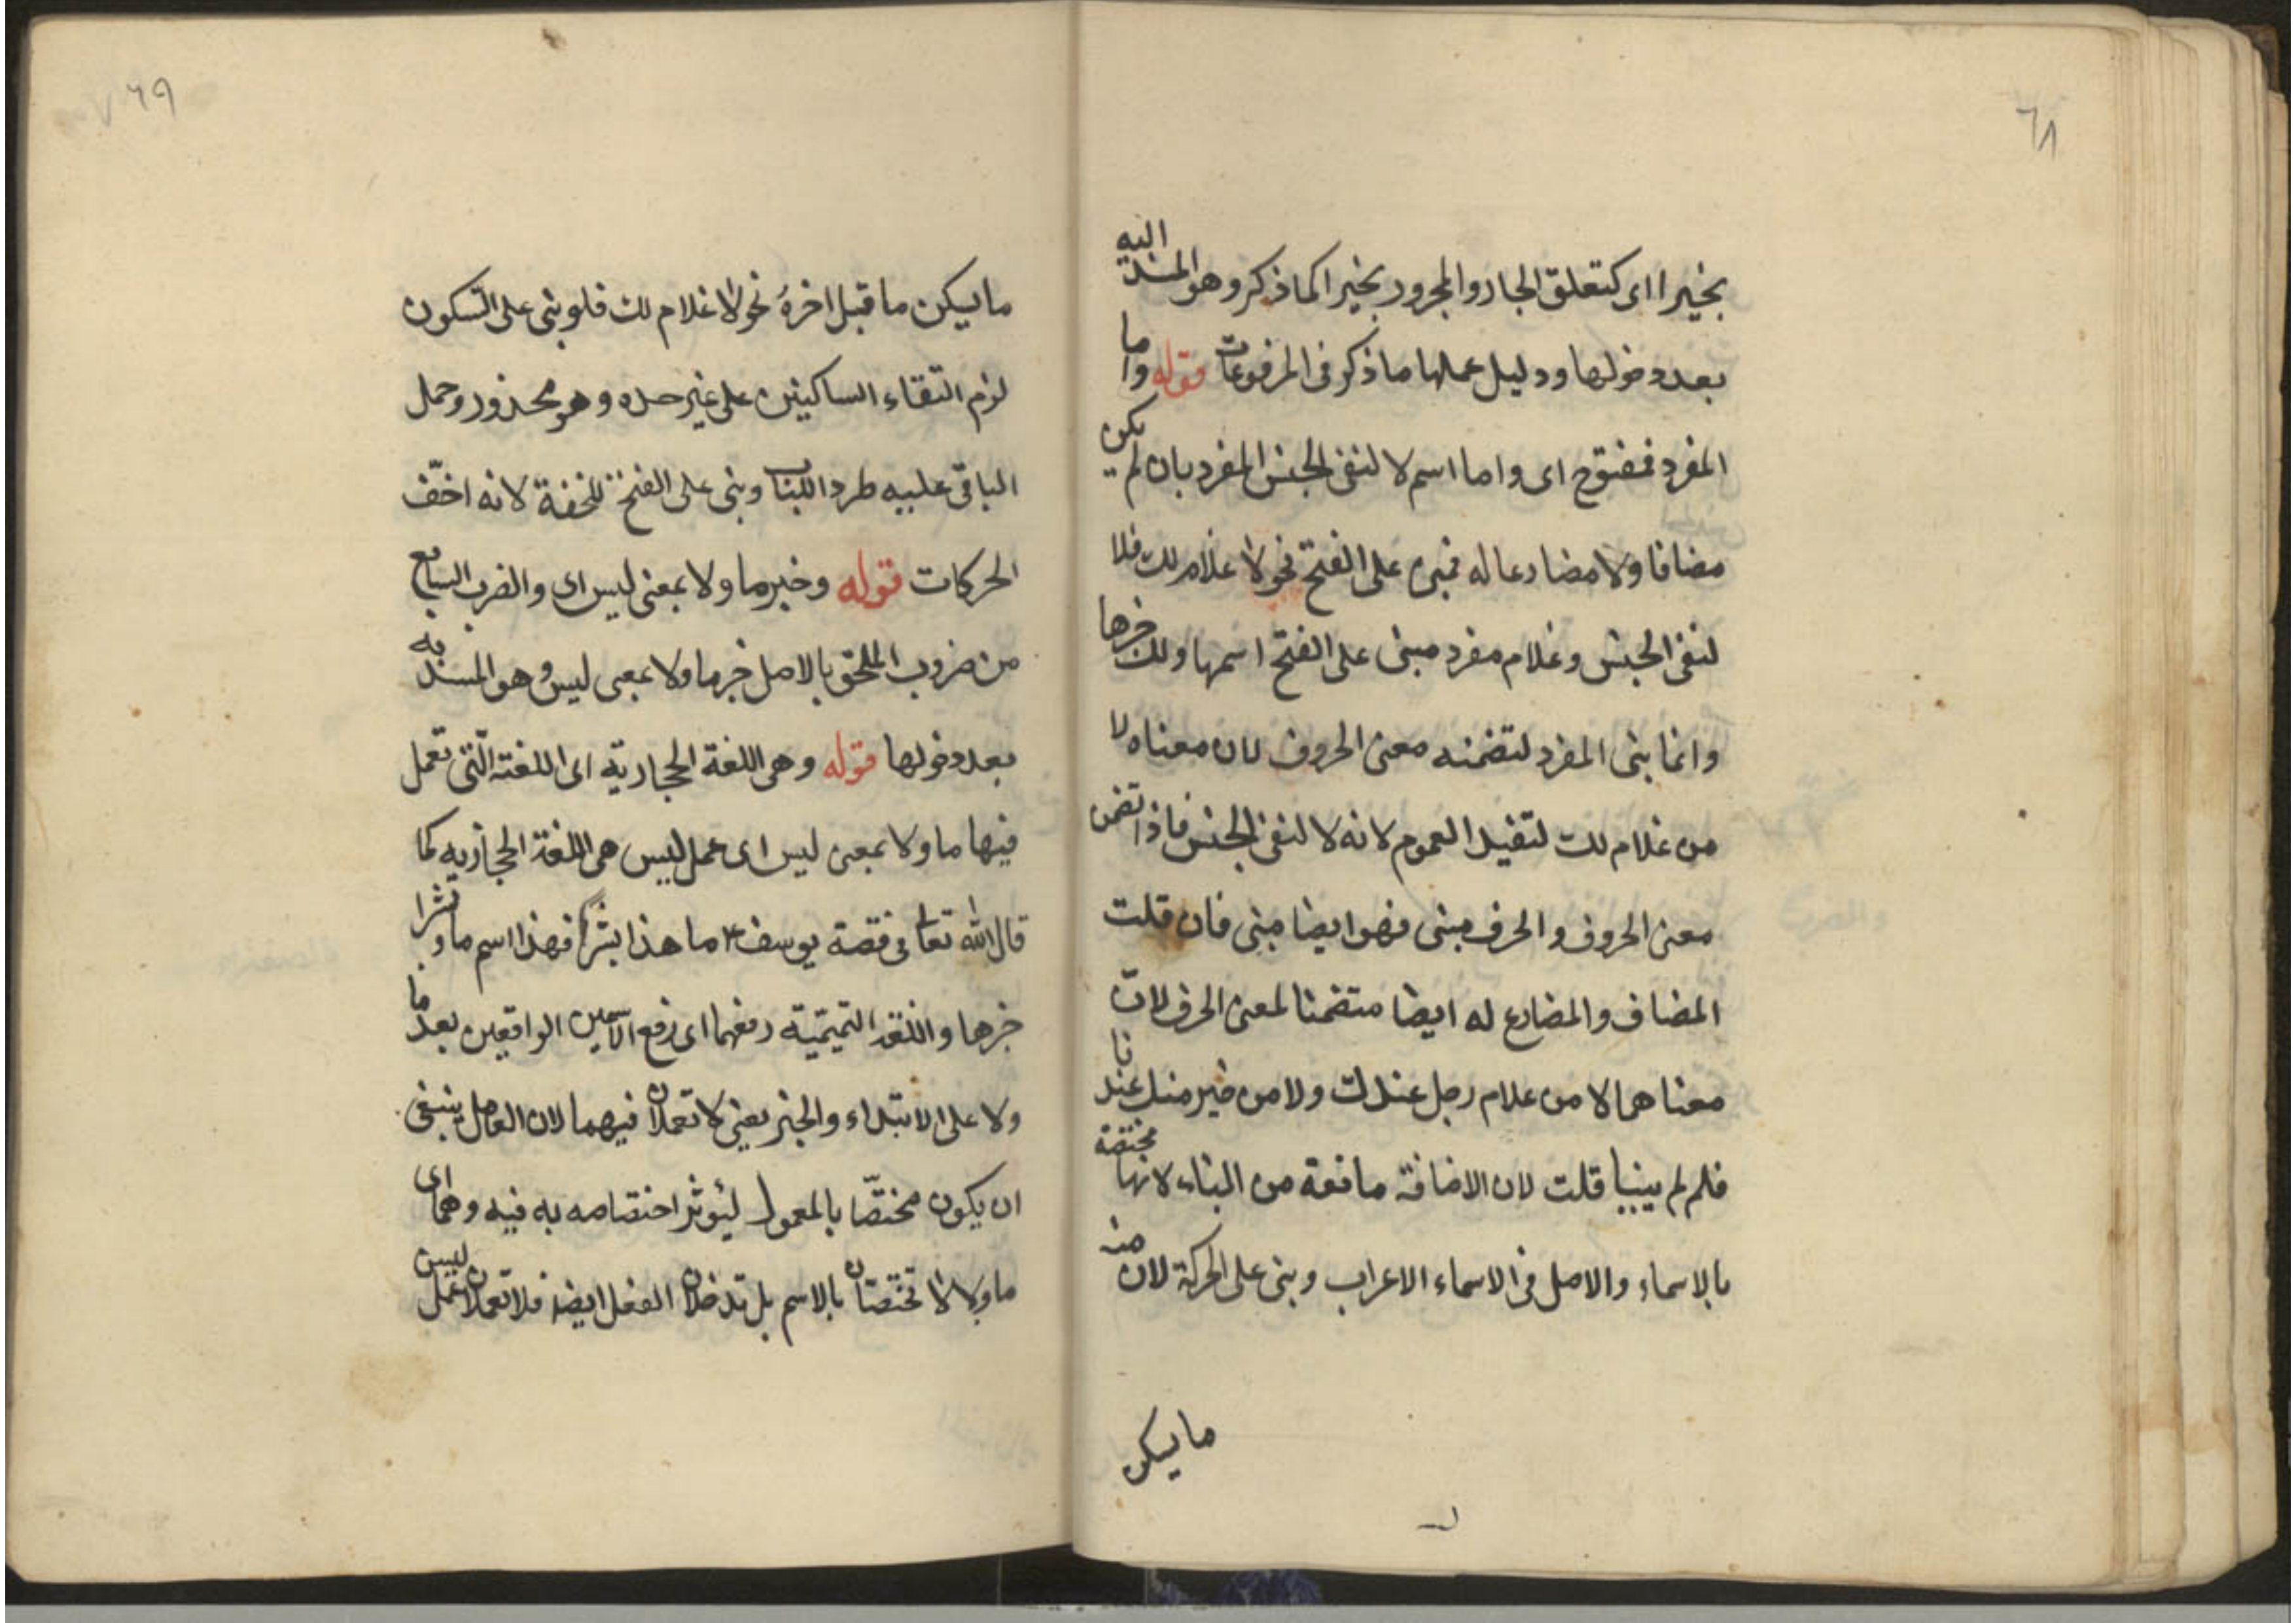 ٦٨
بخيرا اى كتعلق الجار والمجرور بخيرا كما ذكر وهو المسند اليه
بعد دخولها ودليل عملها ما ذكر فى المرفوعات قوله واما
المفرد فمفتوح اى واما اسم لا لنفى الجنس المفرد بان لم يكن
مضافا ولا مضارعا له فمبنى على الفتح نحو لا غلام لك فلا
لنفى الجنس وغلام مفرد مبنى على الفتح اسمها ولك خبرها
وانما بنى المفرد لتضمنه معنى الحروف لان معناه لا
من غلام لك لتفيد العموم لانه لا لنفى الجنس فاذا تضمن
معنى الحروف والحرف مبنى فهو ايضا مبنى فان قلت
المضاف والمضارع له ايضا متضمنا لمعنى الحرف لانّ
معناهما لا من غلام رجل عندك ولا من خير منك عندنا
فلم لم يبنيا قلت لان الاضافة مانعة من البناء لانها مختصة
بالاسماء والاصل فى الاسماء الاعراب وبنى على الحركة لان منه
ما يسكن
٦٩
ما يسكن ما قبل اخره نحو لا غلام لك فلو بنى على السّكون
لزم التقاء الساكنين على غير حده وهو محذور وحمل
الباقى عليه طردا للباب وبنى على الفتح للخفة لانه اخفّ
الحركات قوله وخبر ما ولا بمعنى ليس اى والضرب السابع
من ضروب الملحق بالاصل خبر ما ولا بمعنى ليس وهو المسند به
بعد دخولها قوله وهى اللغة الحجازية اى اللغة الّتى تعمل
فيها ما ولا بمعنى ليس اى عمل ليس هى اللغة الحجازيه كما
قال الله تعا فى قصة يوسف ما هذا بشرًا فهذا اسم ما وبشرا
خبرها واللغة التميميّة رفعهما اى رفع الاسمين الواقعين بعد ما
ولا على الابتداء والخبر يعنى لا تعملان فيهما لان العامل ينبغى
ان يكون مختصّا بالمعمول ليؤثر اختصاصه به فيه وهما اى
ما ولا لا تختصان بالاسم بل تدخلان الفعل ايضا فلا تعملان عمل ليس